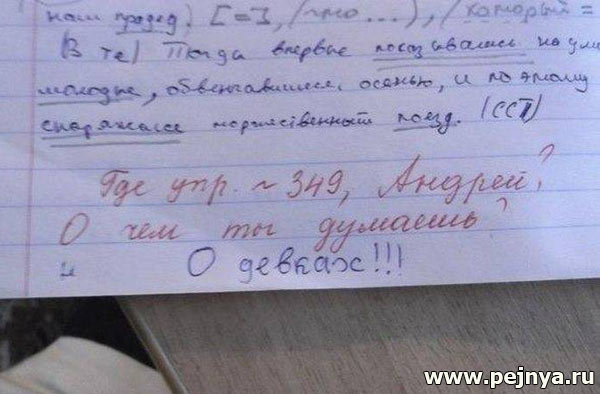 наш прадед). [ = ], (что...), (который =
(В те) Тогда впервые показывались на ули
молодые, обвенчавшиеся осенью, и поэтому
снаряжался торжественный поезд. (ССП)
Где упр. ~ 349, Андрей?
О чем ты думаешь?
О девках!!!
www.pejnya.ru